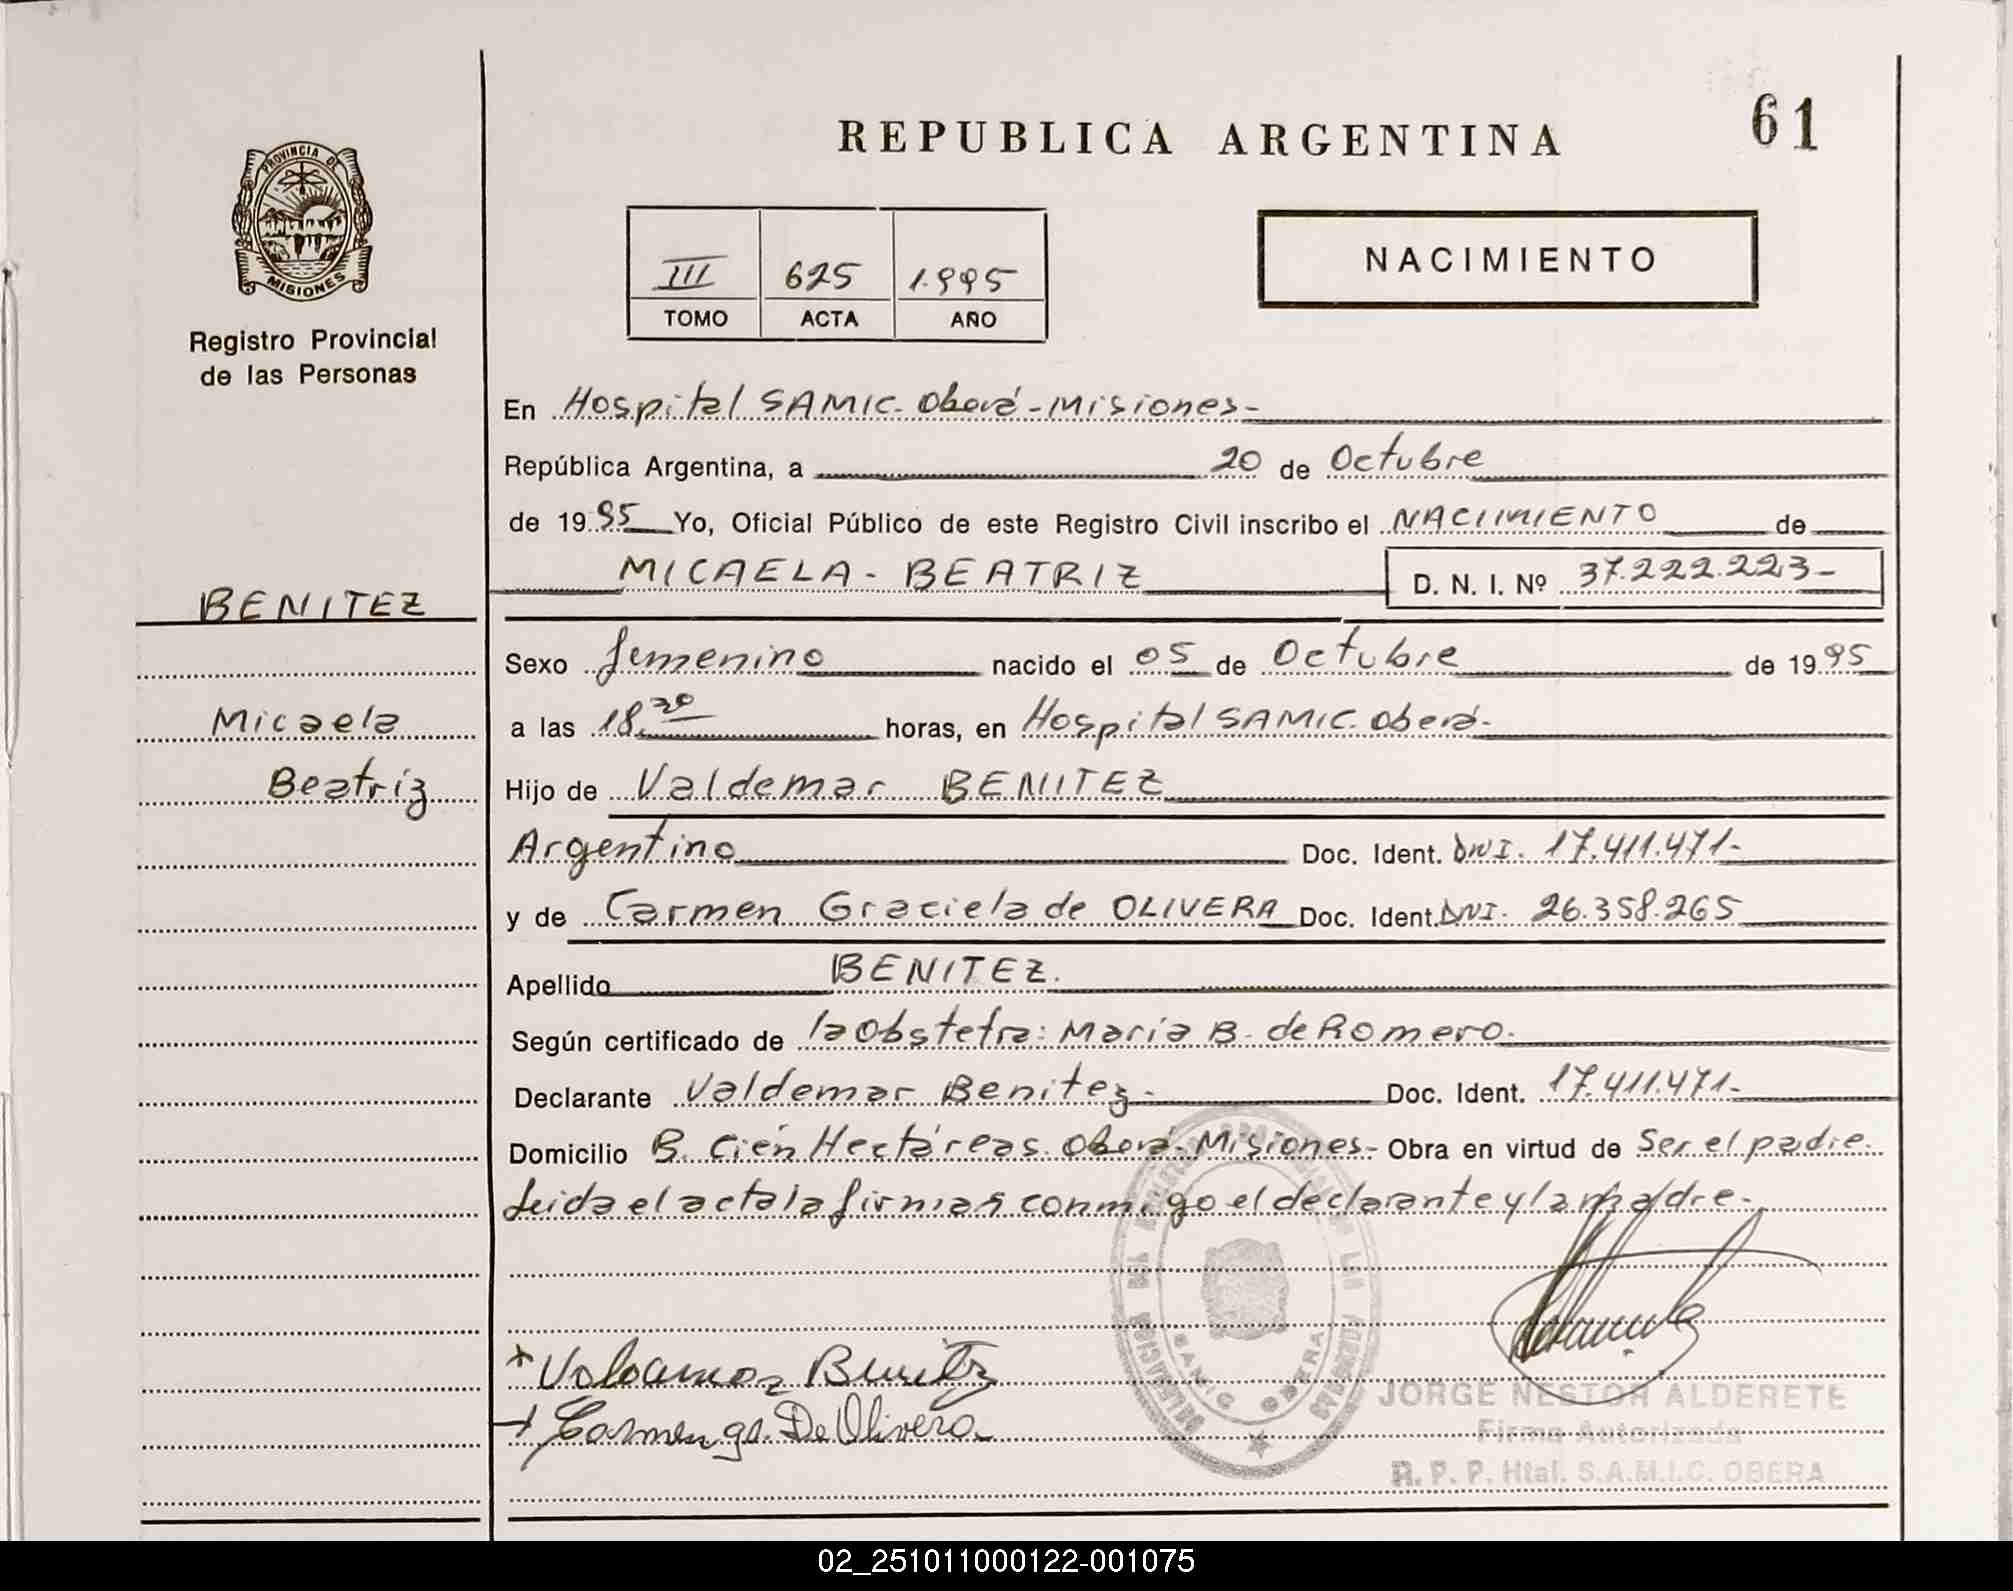 61
REPUBLICA ARGENTINA
PROVINCIA DE
MISIONES
Registro Provincial
de las Personas
NACIMIENTO
III 625 1.995
TOMO ACTA AÑO
En Hospital SAMIC. Oberá - Misiones -
República Argentina, a 20 de Octubre
de 19 95 Yo, Oficial Público de este Registro Civil inscribo el NACIMIENTO de
MICAELA - BEATRIZ D. N. I. Nº 37.222.223 -
BENITEZ
Micaela
Beatriz
Sexo femenino nacido el 05 de Octubre de 19 95
a las 18 horas, en Hospital SAMIC. Oberá -
Hijo de Valdemar BENITEZ
Argentino Doc. Ident. DNI. 17.411.471 -
y de Carmen Graciela de OLIVERA Doc. Ident. DNI. 26.358.265
Apellido BENITEZ.
Según certificado de la Obstetra: Maria B. de Romero.
Declarante Valdemar Benitez - Doc. Ident. 17.411.471 -
Domicilio B. Cien Hectáreas. Oberá - Misiones - Obra en virtud de Ser el padre.
Leida el acta la firman conmigo el declarante y la madre -
SAMIC OBERA
Benitez
Carmen gr. De Olivera
JORGE NESTOR ALDERETE
Firma Autorizada
R. P. P. Htal. S.A.M.I.C. OBERA
02_251011000122-001075